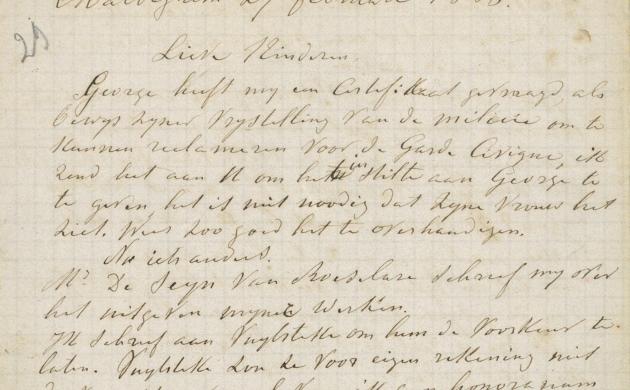 27 februari
25
Lieve Kinderen.
George heeft my een Certifikaat gevraagd, als
bewys zyner Vrystelling van de milicie om te
kunnen reclameren voor de Garde Civique, ik
zend het aan U om het in stilte aan George te
te geven het is niet noodig dat zyne vrouw het
ziet. Wees zoo goed het te overhandigen.
Nu iets anders.
Mr De Seyn van Roeselare schreef my over
het uitgeven myner werken.
Ik schreef aan Vuylsteke om hem de voorkeur te
laten. Vuylsteke zou ze voor eigen rekening niet
honorarium